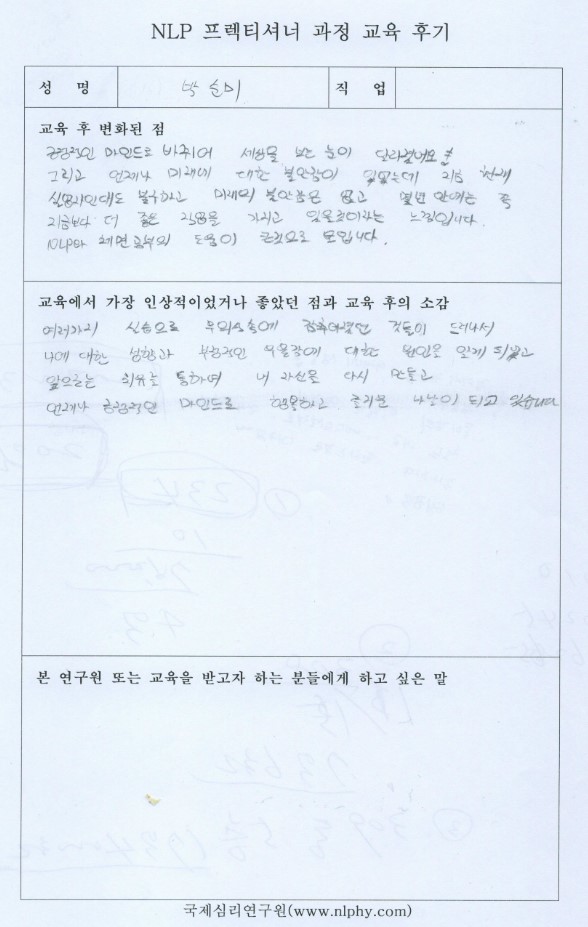 NLP 프렉티셔너 과정 교육 후기
성 명 박순미 직 업
교육 후 변화된 점
긍정적인 마인드로 바뀌어 세상을 보는 눈이 달라졌어요
그리고 언제나 미래에 대한 불안감이 있었는데 지금 현재
실업자인데도 불구하고 미래의 불안감은 없고 몇년 안에는 꼭
지금보다 더 좋은 직업을 가지고 있을것이라는 느낌입니다.
NLP와 최면공부의 도움이 큰것으로 보입니다.
교육에서 가장 인상적이었거나 좋았던 점과 교육 후의 소감
여러가지 실습으로 무의식속에 것들이 드러나서
나에 대한 성향과 부정적인 우울감에 대한 원인을 알게 되었고
앞으로는 치유를 통하여 내 자신을 다시 만들고
언제나 긍정적인 마인드로 행복하고 즐거운 나날이 되고 있습니다
본 연구원 또는 교육을 받고자 하는 분들에게 하고 싶은 말
234
국제심리연구원(www.nlphy.com)